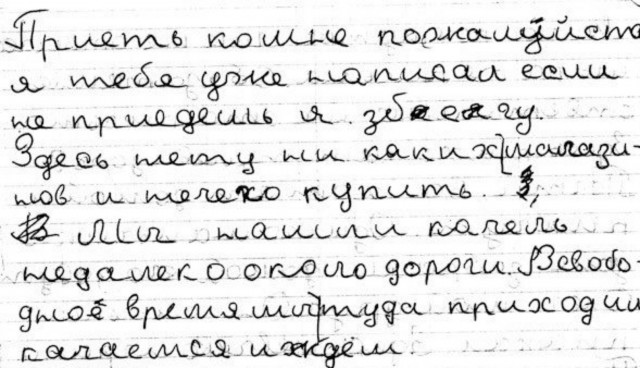 Приеть комне пожалуйста
я тебе уже написал если
не приедешь я збегу.
Здесь нету ни каких магази-
нов и нечего купить.
Мы нашли качель
недалеко около дороги. Всвобо-
дное время мы туда приходим
качаемся и ждём